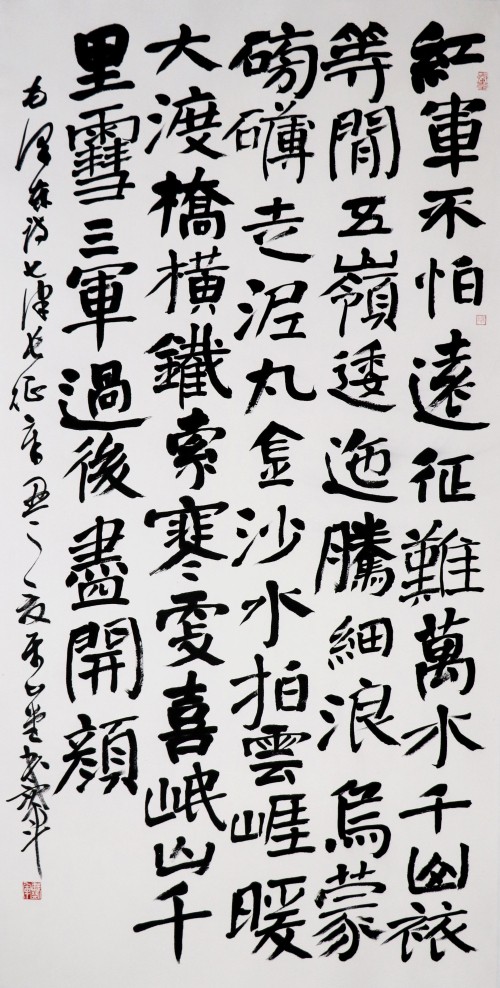 紅軍不怕遠征難萬水千山祇
等閒五嶺逶迤騰細浪烏蒙
磅礴走泥丸金沙水拍雲崕暖
大渡橋橫鐵索寒更喜岷山千
里雪三軍過後盡開顏
毛澤東詩七律長征辛丑之夏